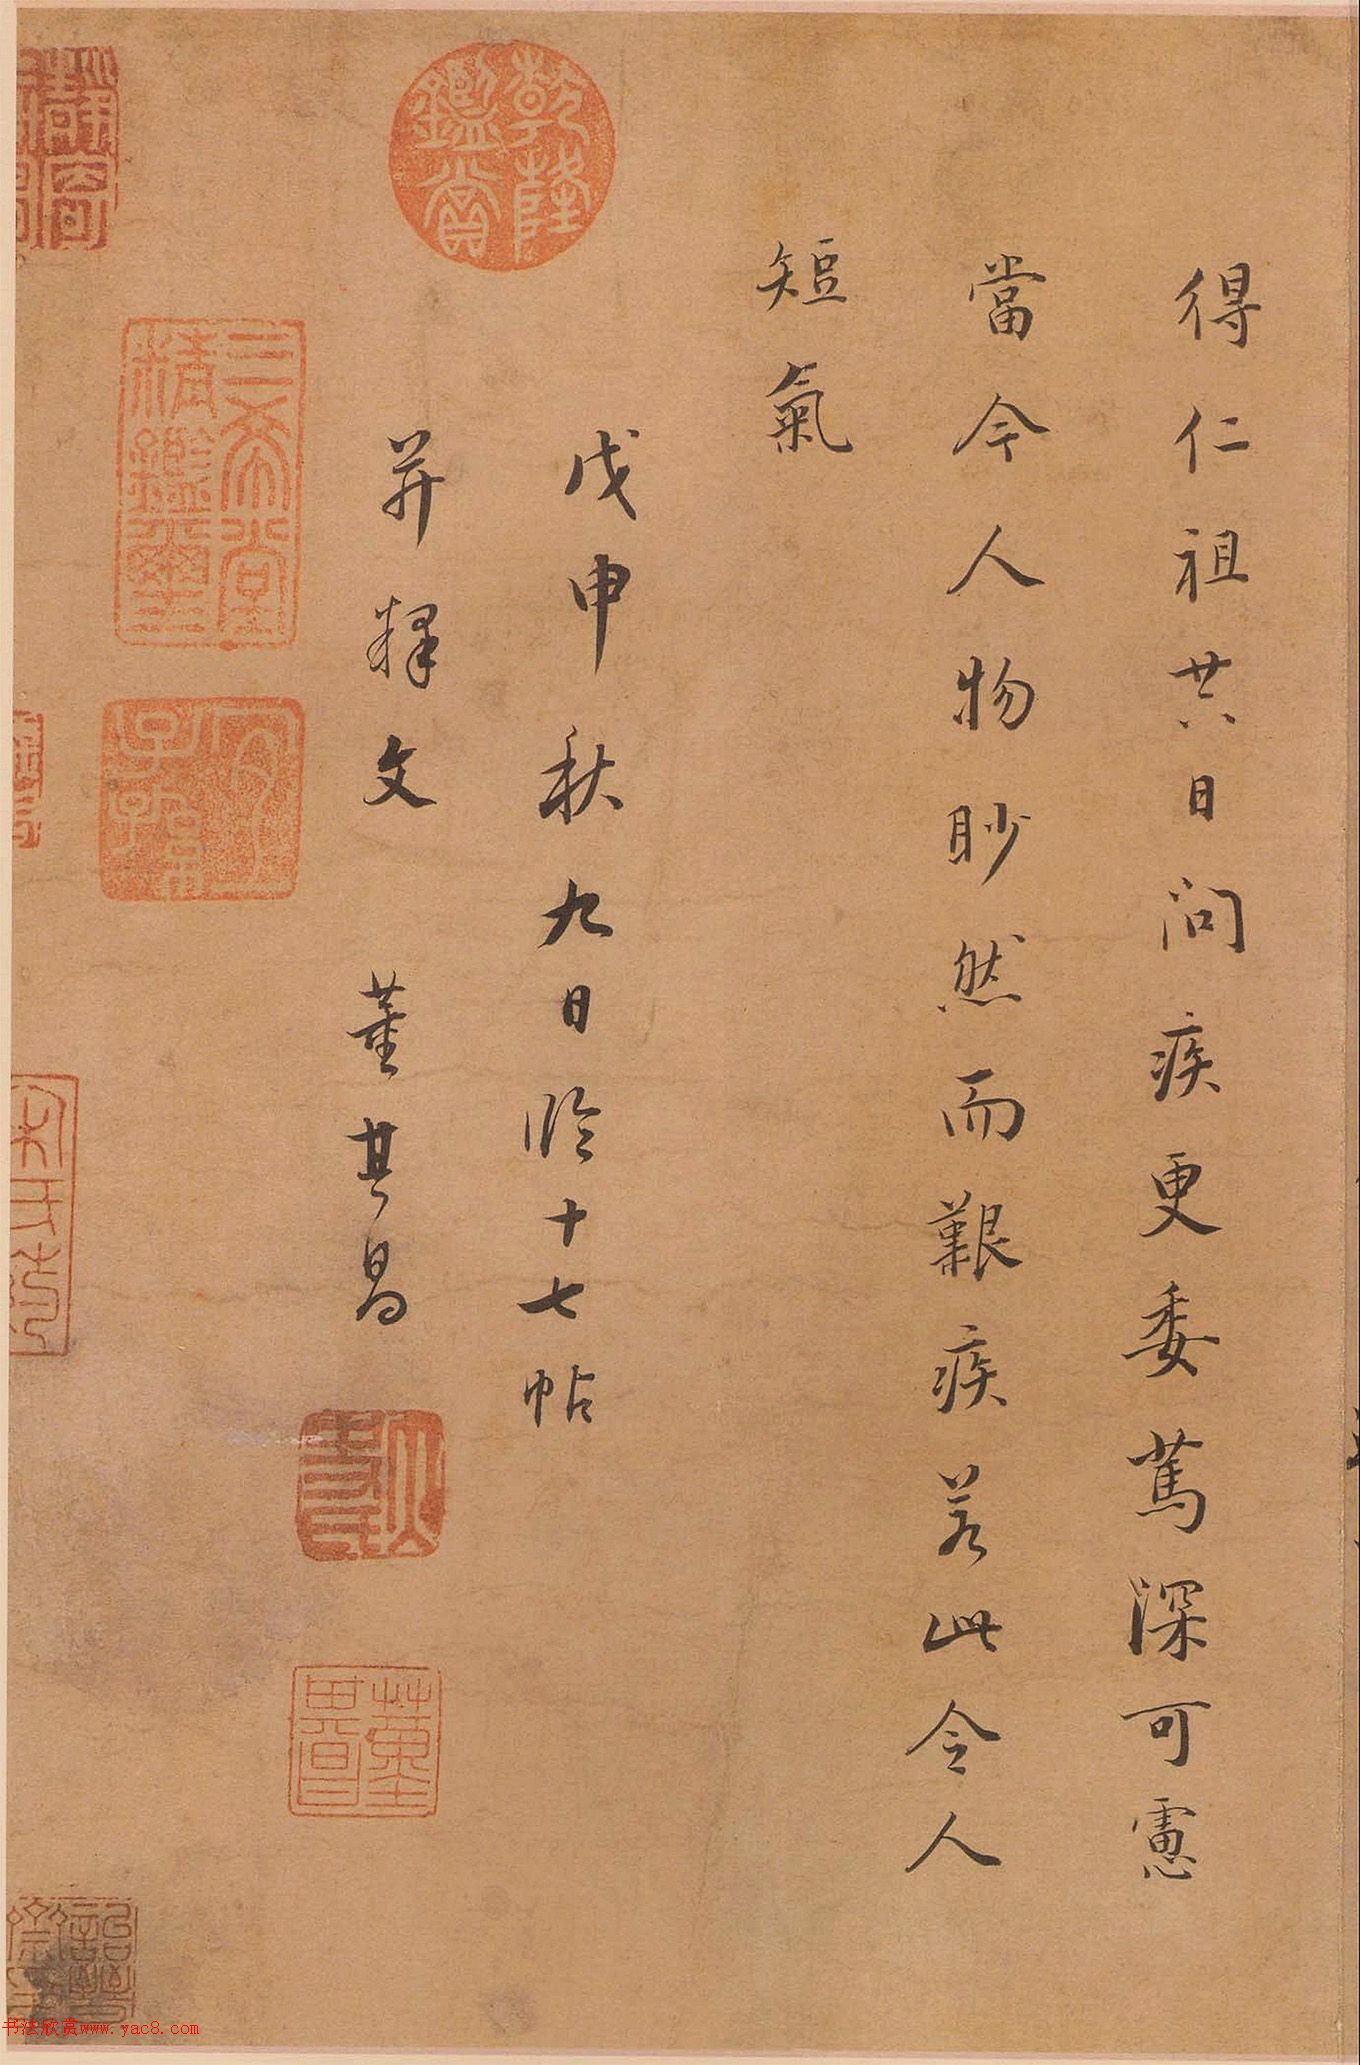 得仁祖廿六日問疾更委篤深可慮
當今人物眇然而艱疾若此令人
短氣
戊申秋九日臨十七帖
并釋文 董其昌
乾隆鑑賞
三希堂精鑑璽
宜子孫
董其昌
书法欣赏www.yac8.com